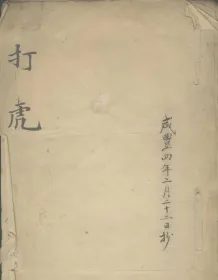 打虎
咸豐四年二月二十二日抄